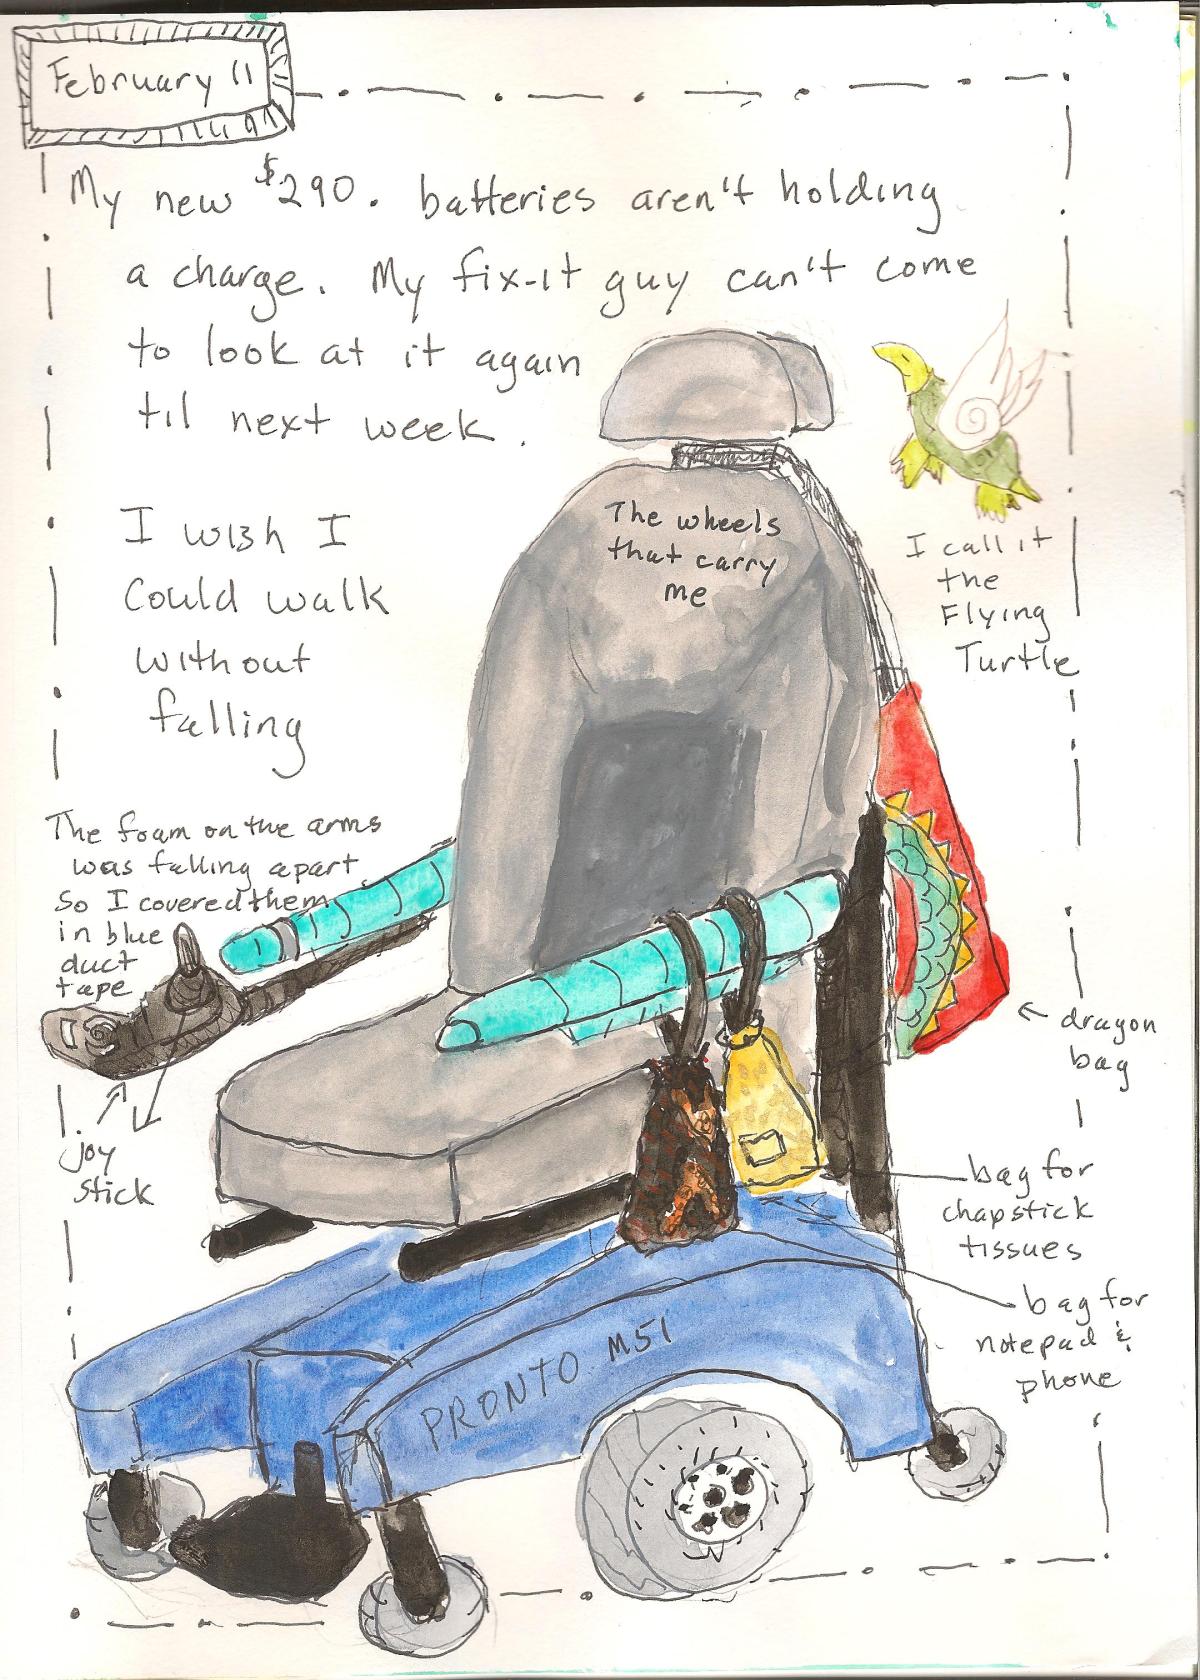 February 11
My new $290. batteries aren't holding
a charge. My fix-it guy can't come
to look at it again
til next week.
I wish I
could walk
without
falling
The wheels
that carry
me
I call it
the
Flying
Turtle
The foam on the arms
was falling apart
So I covered them
in blue
duct
tape
joy
stick
dragon
bag
bag for
chapstick
tissues
bag for
notepad &
phone
PRONTO M51